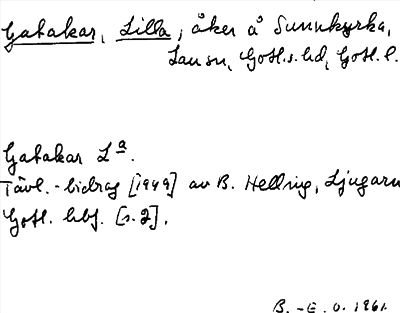 Gatakar, Lilla, åker å Sunnkyrka,
Lau sn, Gotl.s.hd, Gotl. l.
Gatakar L<u>a</u>.
Tävl.-bidrag [1949] av B. Hellrig, Ljugarn
Gotl. hbf. [s. 2].
B.-E. O. 1961.